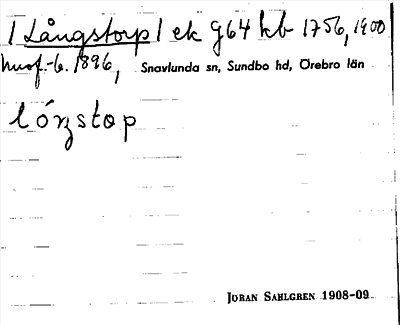 /Långstorp/ ek g64 kb 1756, 1900
husf.-b. 1896, Snavlunda sn, Sundbo hd, Örebro län
JÖRAN SAHLGREN 1908-09